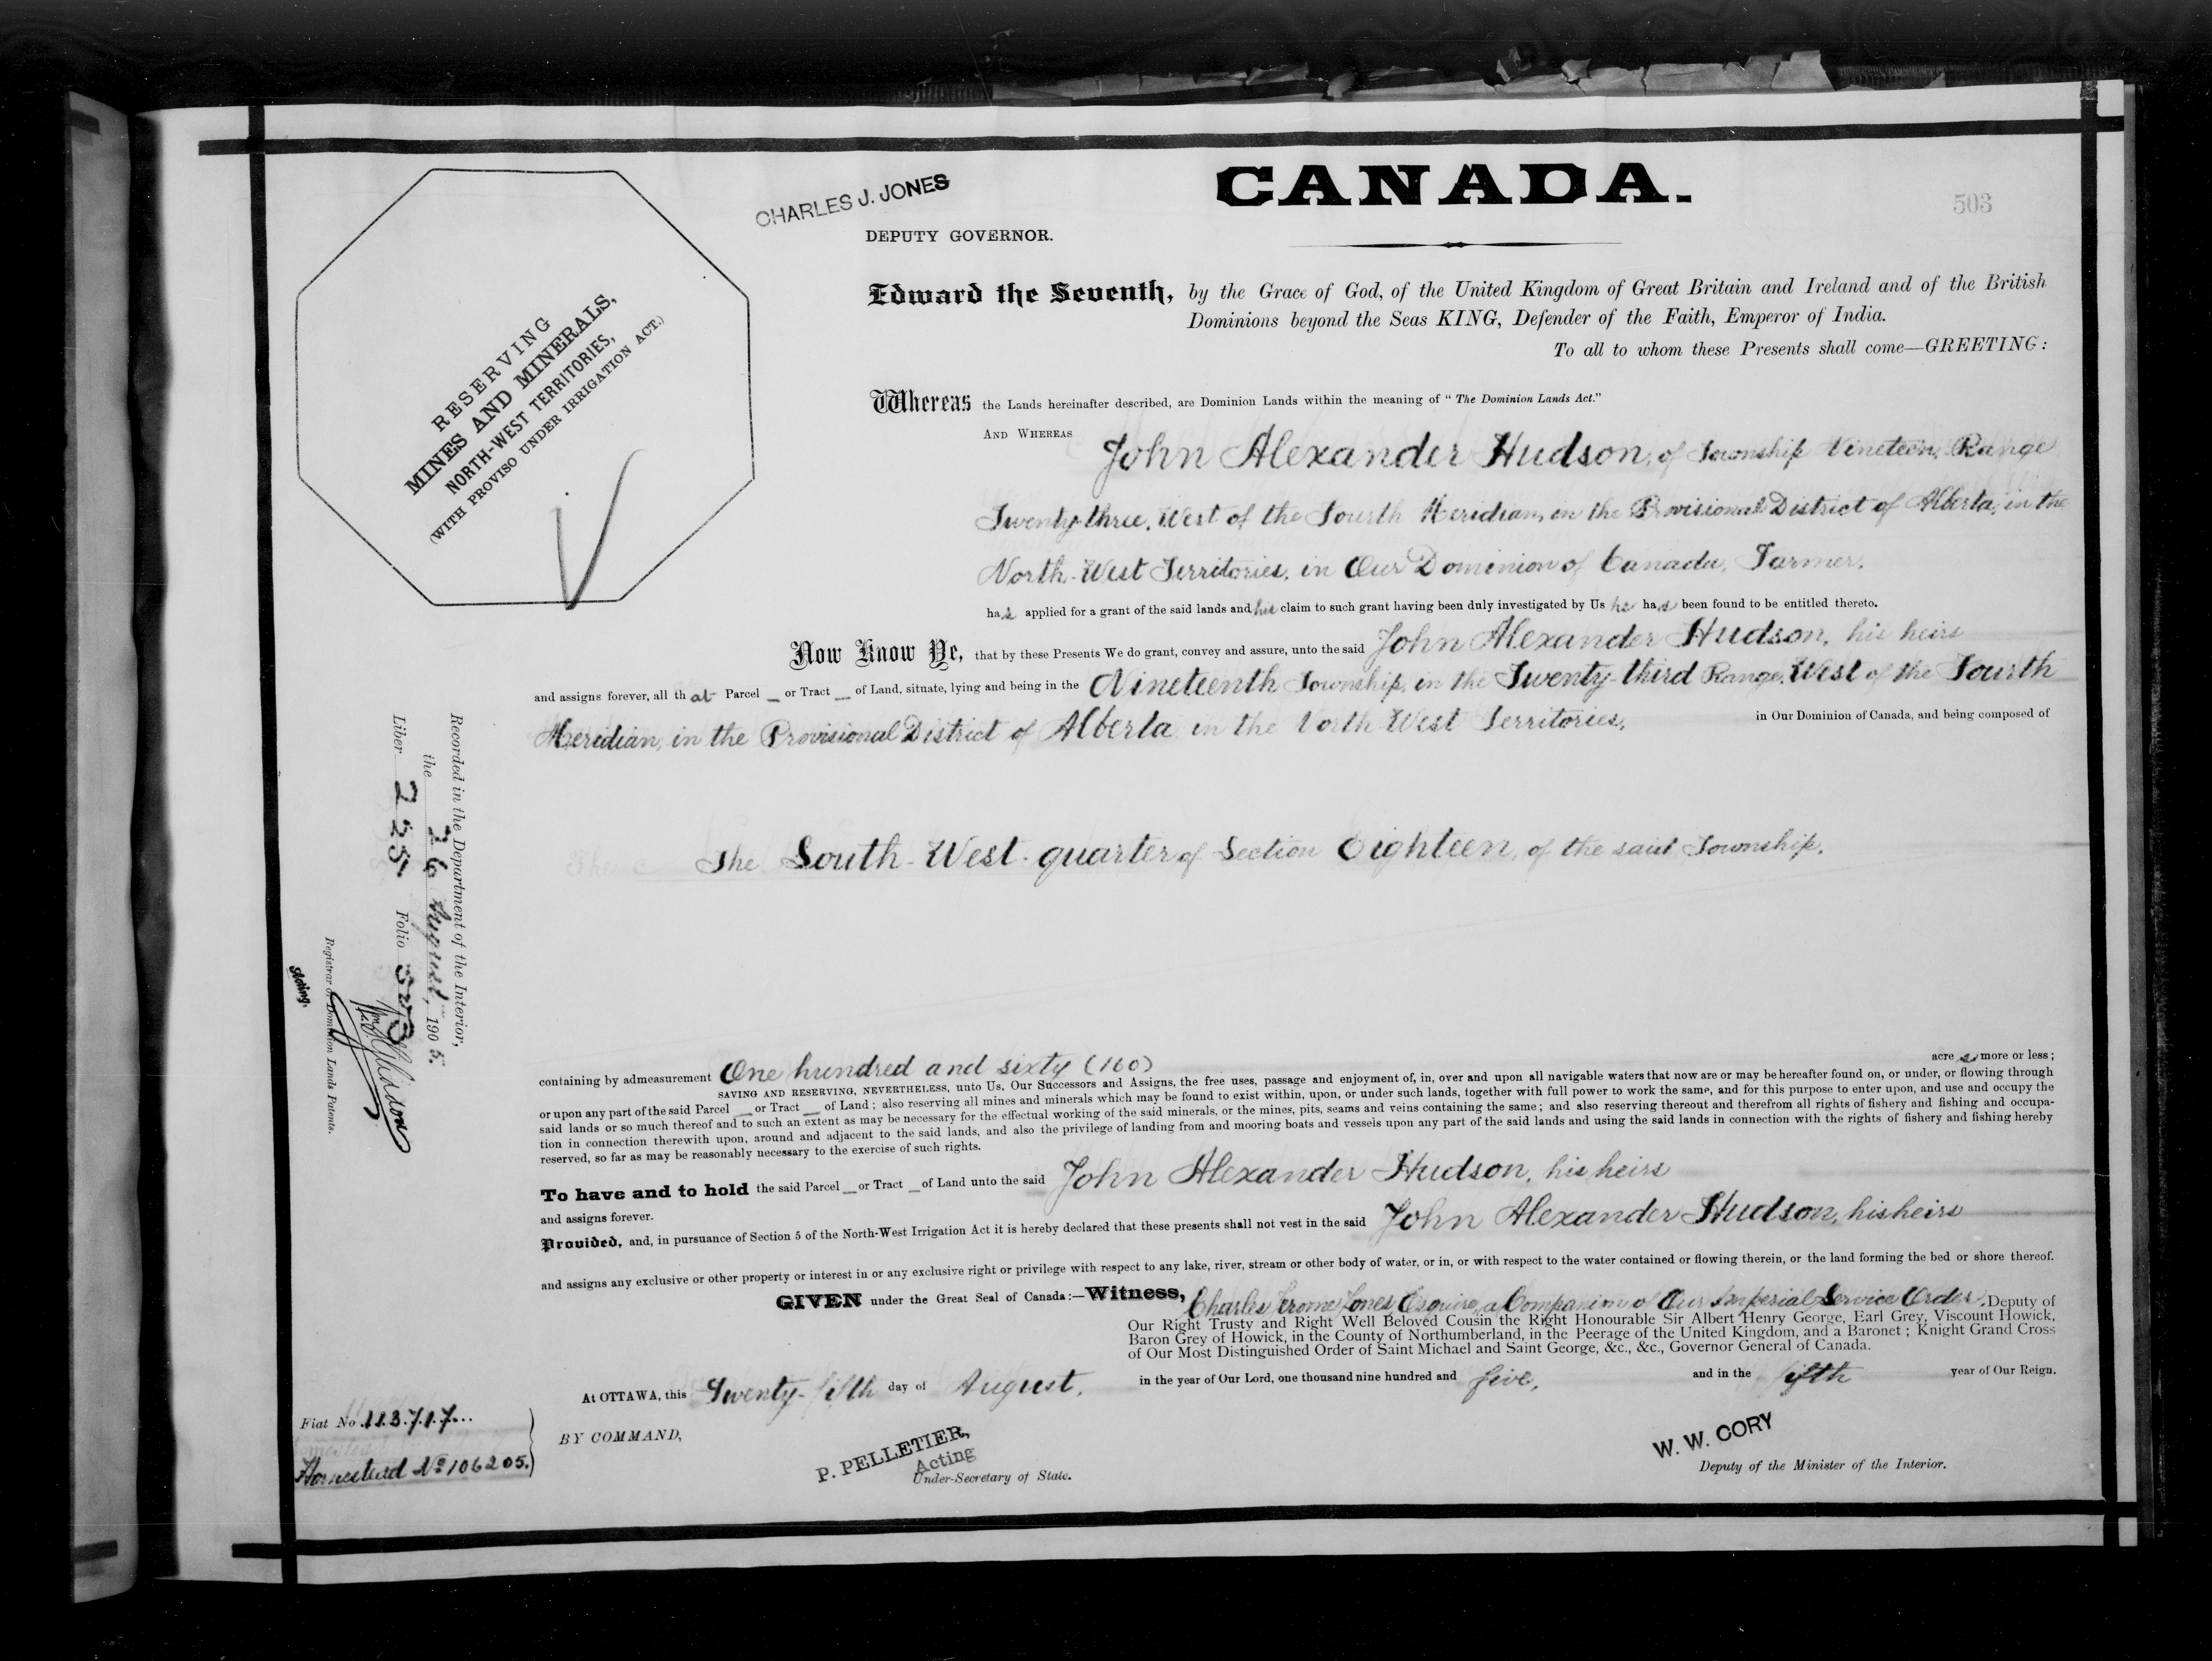 CHARLES J. JONES
DEPUTY GOVERNOR.
CANADA.
503
RESERVING
MINES AND MINERALS,
NORTH-WEST TERRITORIES,
(WITH PROVISO UNDER IRRIGATION ACT.)
Edward the Seventh, by the Grace of God, of the United Kingdom of Great Britain and Ireland and of the British
Dominions beyond the Seas KING, Defender of the Faith, Emperor of India.
To all to whom these Presents shall come—GREETING:
Whereas the Lands hereinafter described, are Dominion Lands within the meaning of "The Dominion Lands Act."
AND WHEREAS John Alexander Hudson, of Township Nineteen, Range
Twenty-three, West of the Fourth Meridian, in the Provisional District of Alberta, in the
North-West Territories, in Our Dominion of Canada, Farmer,
has applied for a grant of the said lands and his claim to such grant having been duly investigated by Us he has been found to be entitled thereto.
Now Know Ye, that by these Presents We do grant, convey and assure, unto the said John Alexander Hudson, his heirs
and assigns forever, all that Parcel _ or Tract _ of Land, situate, lying and being in the Nineteenth Township, in the Twenty-third Range, West of the Fourth
Meridian, in the Provisional District of Alberta in the North-West Territories, in Our Dominion of Canada, and being composed of
The South-West-quarter of Section Eighteen, of the said Township.
Recorded in the Department of the Interior,
the 26 August, 1905.
Liber 225 Folio 503
Registrar of Dominion Lands Patents.
Acting.
containing by admeasurement One hundred and sixty (160) acres more or less;
SAVING AND RESERVING, NEVERTHELESS, unto Us, Our Successors and Assigns, the free uses, passage and enjoyment of, in, over and upon all navigable waters that now are or may be hereafter found on, or under, or flowing through
or upon any part of the said Parcel _ or Tract _ of Land; also reserving all mines and minerals which may be found to exist within, upon, or under such lands, together with full power to work the same, and for this purpose to enter upon, and use and occupy the
said lands or so much thereof and to such an extent as may be necessary for the effectual working of the said minerals, or the mines, pits, seams and veins containing the same; and also reserving thereout and therefrom all rights of fishery and fishing and occupa-
tion in connection therewith upon, around and adjacent to the said lands, and also the privilege of landing from and mooring boats and vessels upon any part of the said lands and using the said lands in connection with the rights of fishery and fishing hereby
reserved, so far as may be reasonably necessary to the exercise of such rights.
To have and to hold the said Parcel _ or Tract _ of Land unto the said John Alexander Hudson, his heirs
and assigns forever.
Provided, and, in pursuance of Section 5 of the North-West Irrigation Act it is hereby declared that these presents shall not vest in the said John Alexander Hudson, his heirs
and assigns any exclusive or other property or interest in or any exclusive right or privilege with respect to any lake, river, stream or other body of water, or in, or with respect to the water contained or flowing therein, or the land forming the bed or shore thereof.
GIVEN under the Great Seal of Canada:—Witness, Charles Jerome Jones Esquire, a Companion of Our Imperial Service Order, Deputy of
Our Right Trusty and Right Well Beloved Cousin the Right Honourable Sir Albert Henry George, Earl Grey, Viscount Howick,
Baron Grey of Howick, in the County of Northumberland, in the Peerage of the United Kingdom, and a Baronet; Knight Grand Cross
of Our Most Distinguished Order of Saint Michael and Saint George, &c., &c., Governor General of Canada.
At OTTAWA, this Twenty-fifth day of August, in the year of Our Lord, one thousand nine hundred and five, and in the fifth year of Our Reign.
Fiat No. 113717...
Homestead No 106205.
BY COMMAND,
P. PELLETIER,
Acting
Under-Secretary of State.
W. W. CORY
Deputy of the Minister of the Interior.